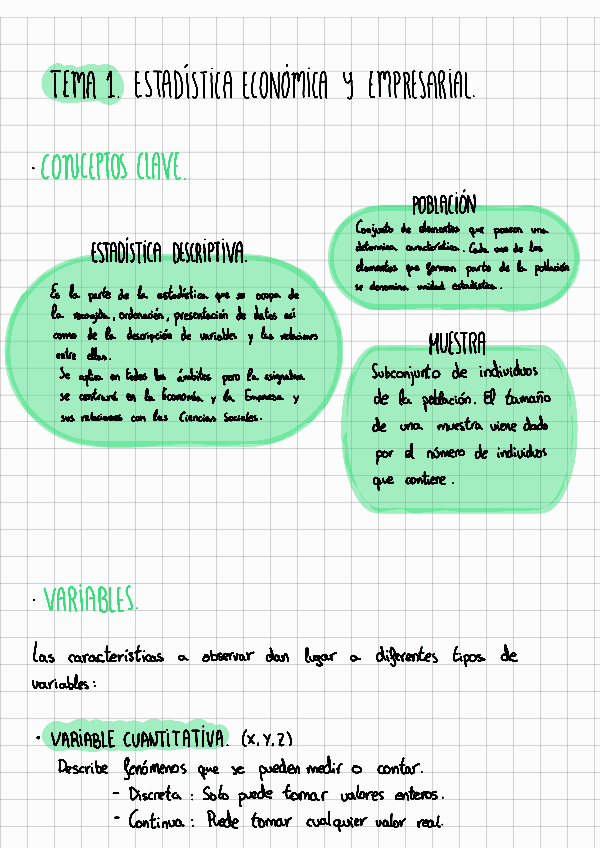 TEMA 1. ESTADÍSTICA ECONÓMICA Y EMPRESARIAL.
· CONCEPTOS CLAVE.
ESTADÍSTICA DESCRIPTIVA.
Es la parte de la estadística que se ocupa de
la recogida, ordenación, presentación de datos así
como de la descripción de variables y las relaciones
entre ellas.
Se aplica en todos los ámbitos pero la asignatura
se centrará en la Economía y la Empresa y
sus relaciones con las Ciencias Sociales.
POBLACIÓN
Conjunto de elementos que poseen una
determina característica. Cada uno de los
elementos que forman parte de la población
se denomina unidad estadística.
MUESTRA
Subconjunto de individuos
de la población. El tamaño
de una muestra viene dado
por el número de individuos
que contiene.
· VARIABLES.
Las características a observar dan lugar a diferentes tipos de
variables:
· VARIABLE CUANTITATIVA. (X,Y,Z)
Describe fenómenos que se pueden medir o contar.
- Discreta: Solo puede tomar valores enteros.
- Continua: Puede tomar cualquier valor real.